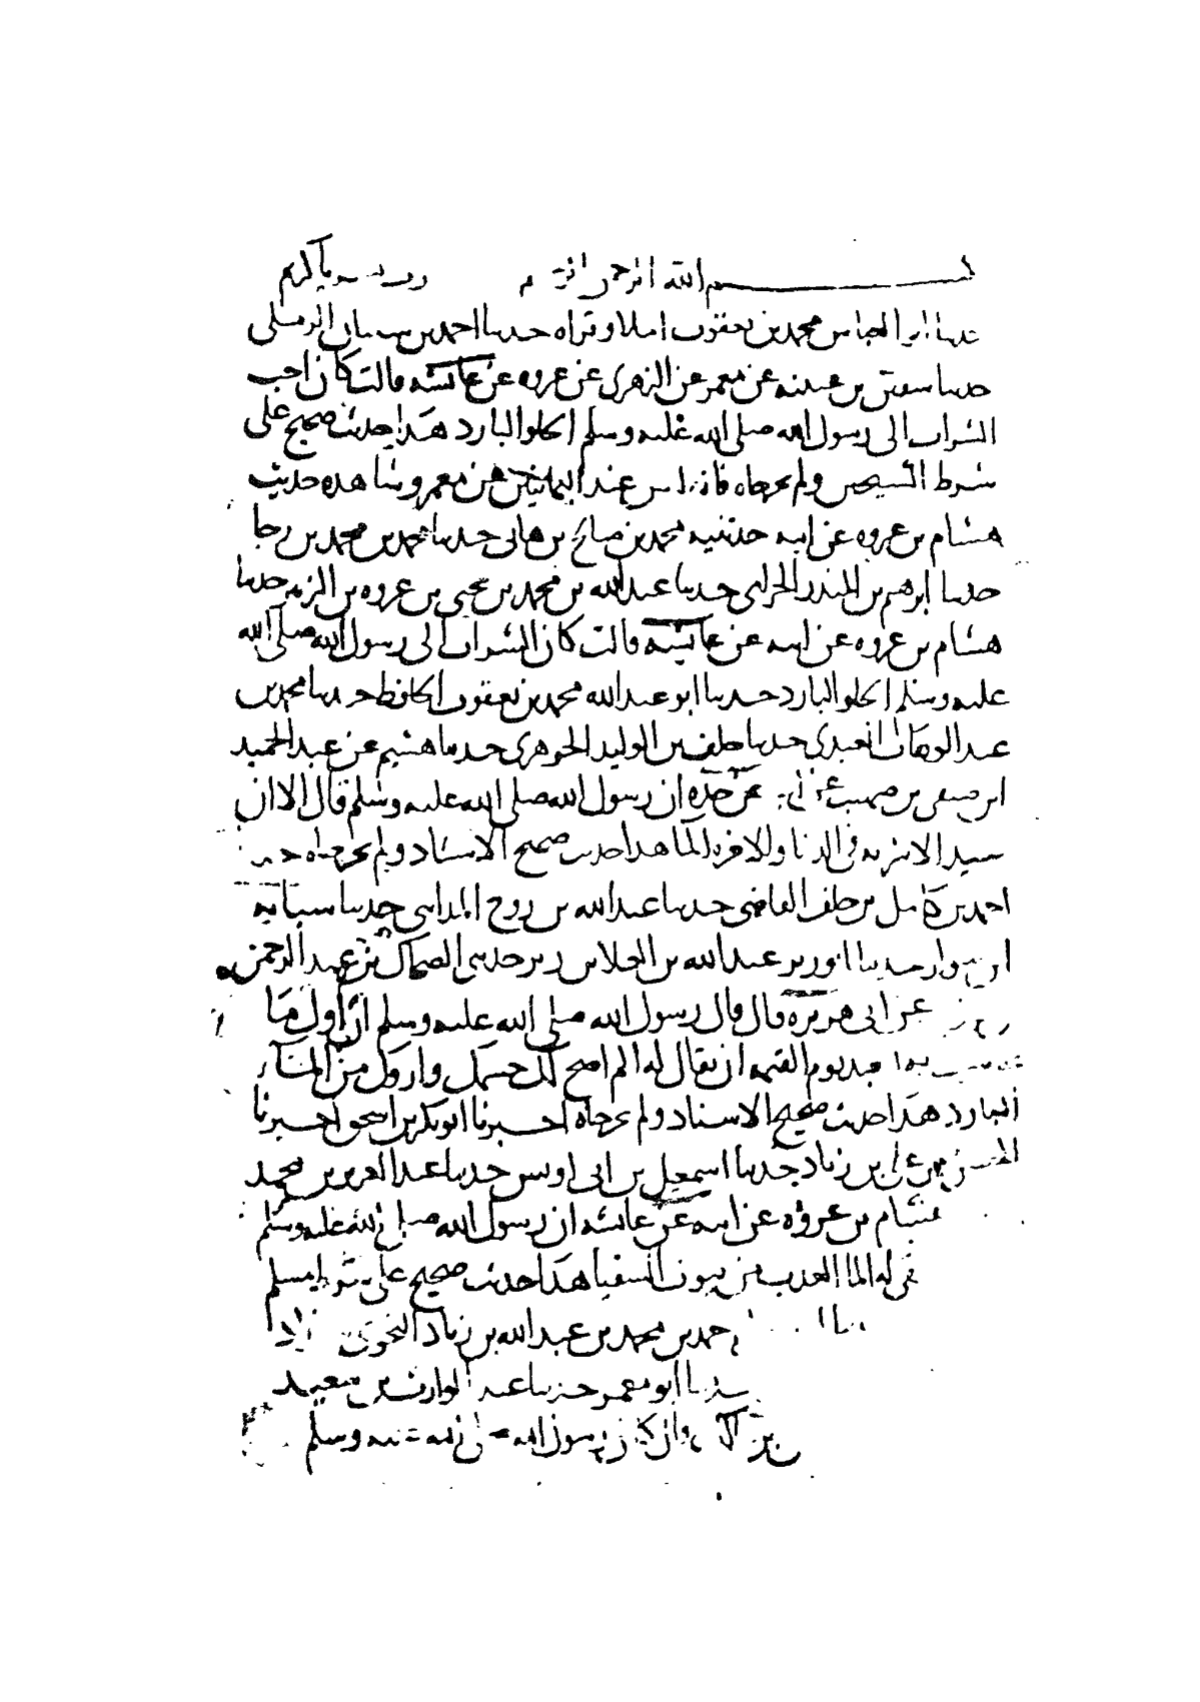 بسم الله الرحمن الرحيم رب يسر يا كريم
حدثنا ابو العباس محمد بن يعقوب املا وقراه حدثنا احمد بن شيبان الرملى
حدثنا سفين بن عيينه عن معمر عن الزهرى عن عروه عن عائشه قالت كان احب
الشراب الى رسول الله صلى الله عليه وسلم الحلو البارد هذا حديث صحيح على
شرط الشيحين ولم يخرجاه فانه ليس عند اليمانيين عن معمر وشاهده حديث
هشام بن عروه عن ابيه حدثنيه محمد بن صالح بن هانى حدثنا محمد بن محمد بن رجا
حدثنا ابرهيم بن المنذر الحزامى حدثنا عبد الله بن محمد بن يحيى بن عروه بن الزبير حدثنا
هشام بن عروه عن ابيه عن عائشه قالت كان الشراب الى رسول الله صلى الله
عليه وسلم الحلو البارد حدثنا ابو عبد الله محمد بن يعقوب الحافظ حدثنا محمد بن
عبد الوهاب العبدى حدثنا خلف بن الوليد الجوهرى حدثنا هشيم عن عبد الحميد
ابن صيفى بن صهيب عن ابيه عن جده ان رسول الله صلى الله عليه وسلم قال الا ان
سيد الاشربه فى الدنيا والاخره الما هذا حديث صحيح الاسناد ولم يخرجاه حدثنا
احمد بن كامل بن خلف القاضى حدثنا عبد الله بن روح المداينى حدثنا شبابه
ابن سوار حدثنا ابو زبر عبد الله بن العلا بن زبر حدثنى الضحاك بن عبد الرحمن
عن ابى هريره قال قال رسول الله صلى الله عليه وسلم ان اول ما
العبد يوم القيمه ان يقال له الم اصح لك جسمك وارويك من الما
البارد هذا حديث صحيح الاسناد ولم يخرجاه اخبرنا ابو بكر بن اسحق اخبرنا
الحسن بن على بن زياد حدثنا اسمعيل بن ابى اويس حدثنا عبد العزيز بن محمد
هشام بن عروه عن ابيه عن عائشه ان رسول الله صلى الله عليه وسلم
له الما العذب من بيوت السقيا هذا حديث صحيح على شرط مسلم
احمد بن محمد بن عبد الله بن زياد النحوى
حدثنا ابو معمر حدثنا عبد الوارث بن سعيد
كان رسول الله صلى الله عليه وسلم